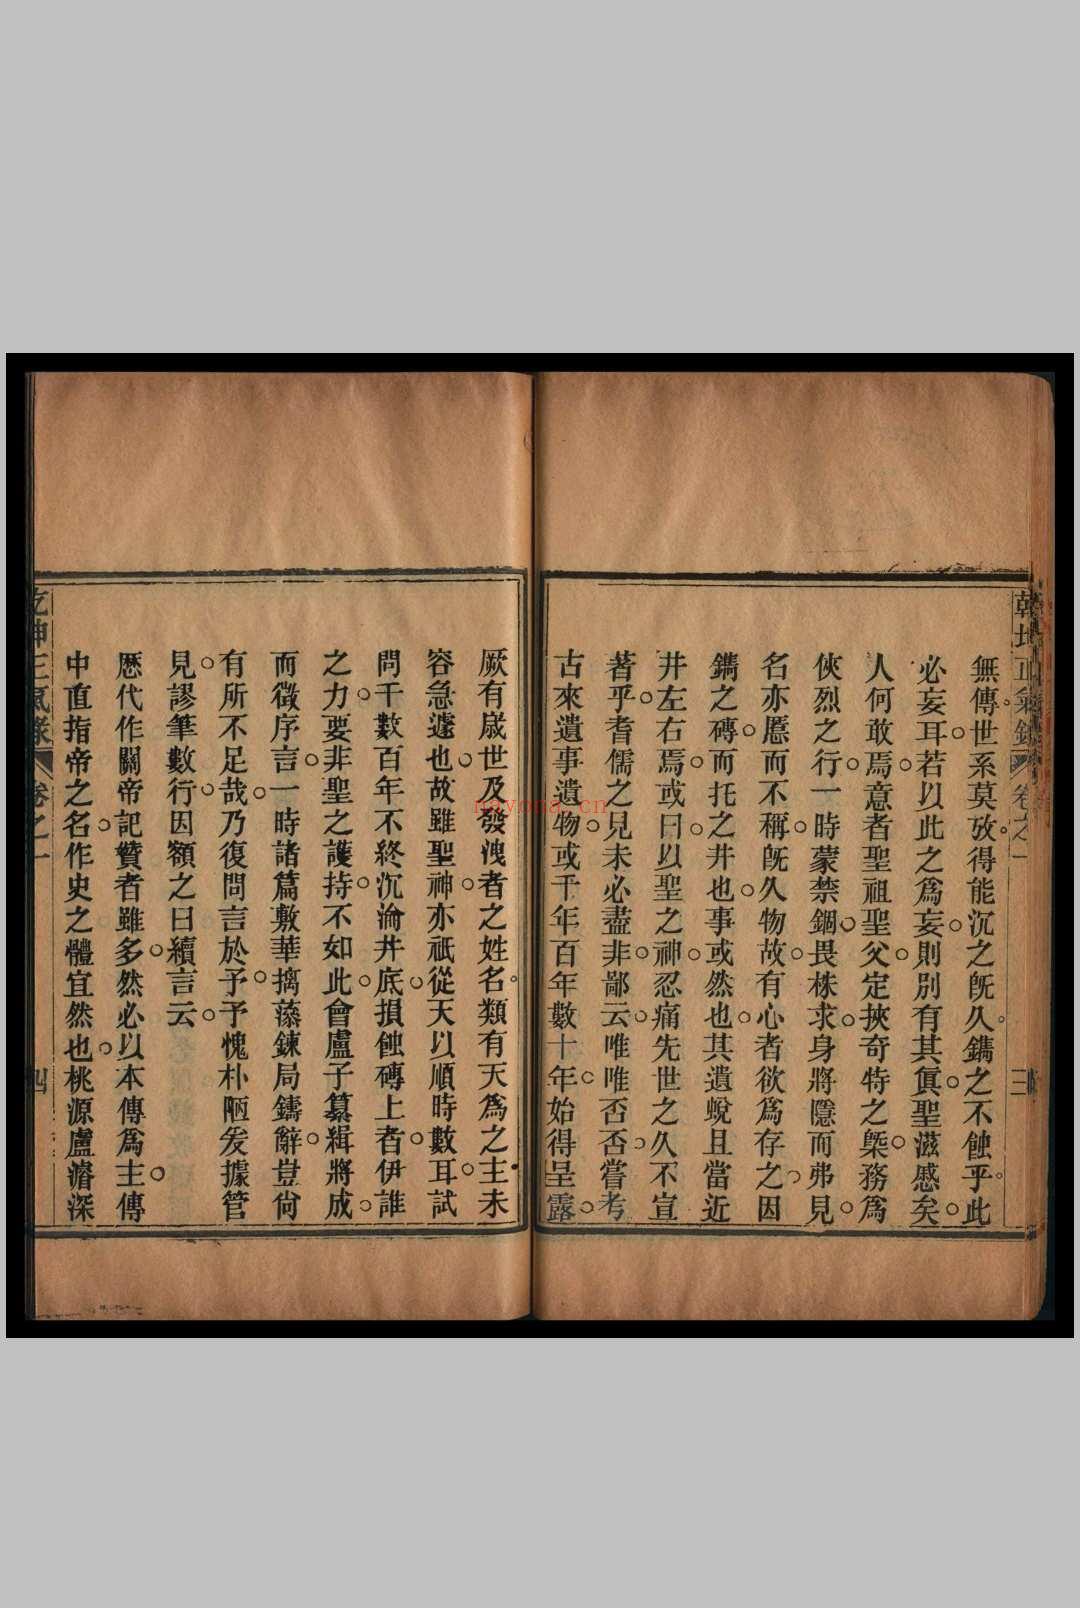 乾坤正氣錄
卷之一
三
無傳世系莫攷得能沉之旣久鐫之不蝕乎此
必妄耳若以此之爲妄則別有其眞聖滋慼矣
人何敢焉意者聖祖聖父定挾奇特之槩務爲
俠烈之行一時蒙禁錮畏株求身將隱而弗見
名亦慝而不稱旣久物故有心者欲爲存之因
鐫之磚而托之井也事或然也其遺蛻且當近
井左右焉或曰以聖之神忍痛先世之久不宣
著乎耆儒之見未必盡非鄙云唯唯否否嘗考
古來遺事遺物或千年百年數十年始得呈露
厥有歲世及發洩者之姓名類有天爲之主未
容急遽也故雖聖神亦祇從天以順時數耳試
問千數百年不終沉淪井底損蝕磚上者伊誰
之力要非聖之護持不如此會盧子纂緝將成
而徵序言一時諸篇敷華摛藻鍊局鑄辭豈尙
有所不足哉乃復問言於予予愧朴陋爰據管
見謬筆數行因額之曰續言云
歷代作關帝記贊者雖多然必以本傳爲主傳
中直指帝之名作史之體宜然也桃源盧濬深
乾坤正氣錄
卷之一
四
nayona.cn